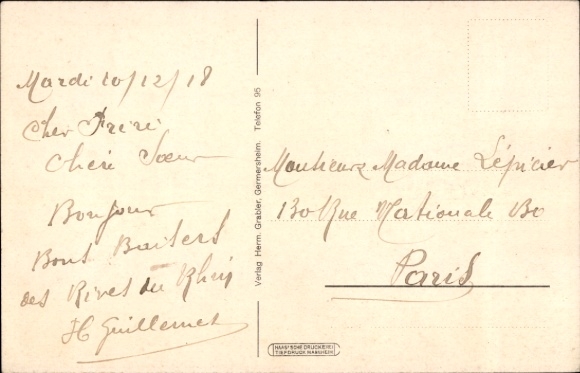 Mardi 10/12/18
Cher Frère
Chère Sœur
Bonjour
Bons Baisers
des Rives du Rhin
H Guillemet
Verlag Herm. Grabler, Germersheim. Telefon 95
Monsieur Madame Lépicier
130 Rue Nationale 130
Paris
HAAS'SCHE DRUCKEREI
TIEFDRUCK MANNHEIM